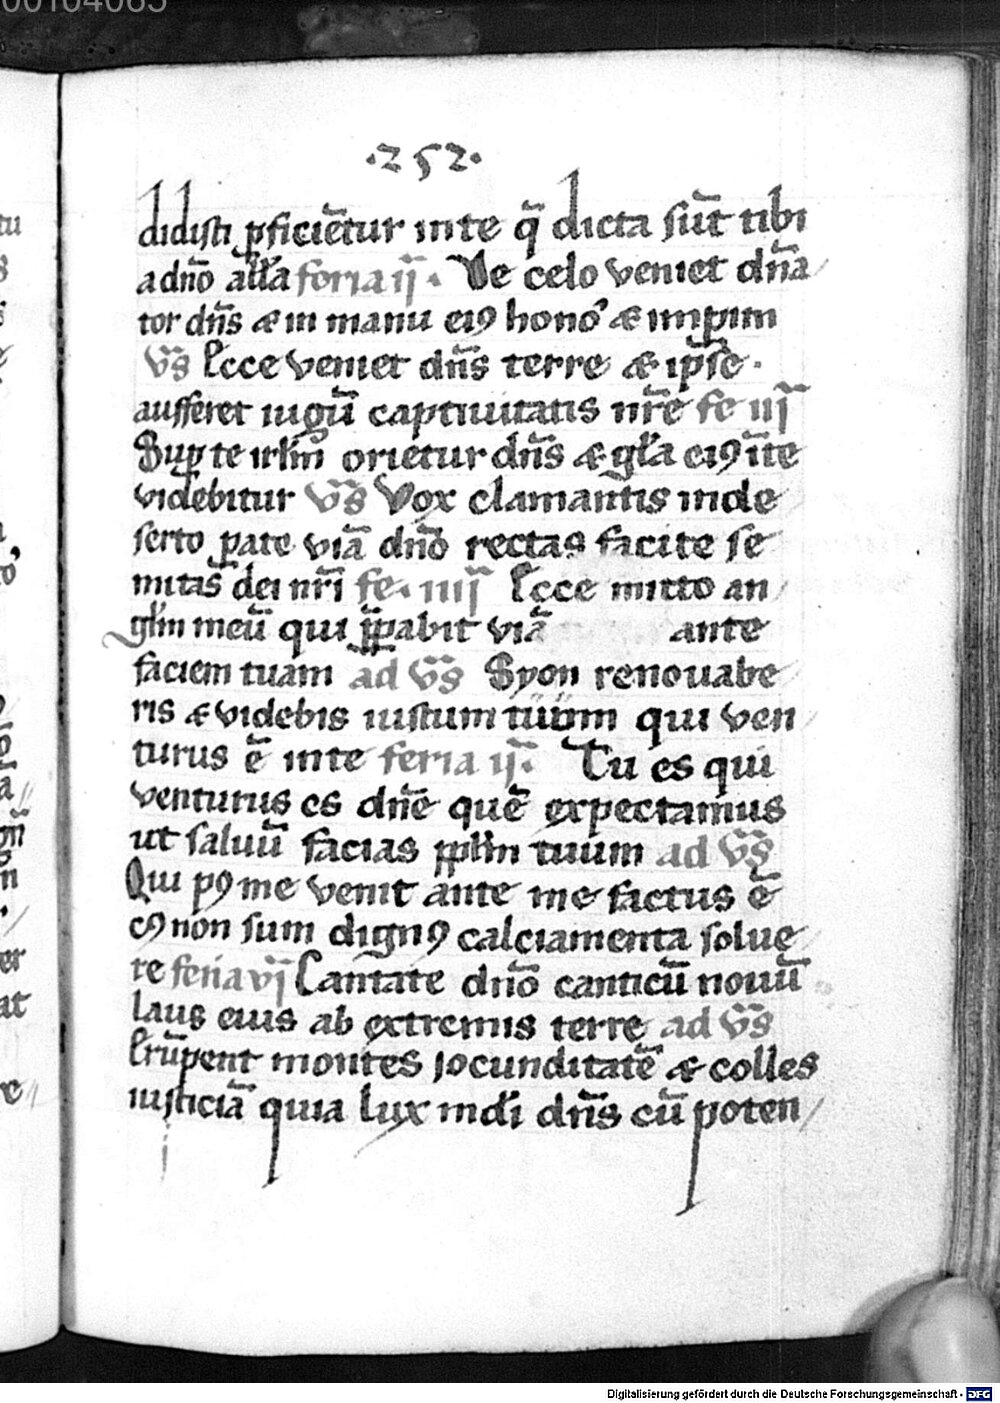 00104065
·252·
didisti ꝑficiẽtur in te q̃ dicta sũt tibi
a dño alĺa feria ij · De celo veniet dña
tor dñs & in manu eiꝰ honoꝰ & impꝫum
v̄s Ecce veniet dñs terre & ip̃e ·
aufferet iugũ captiuitatis nr̃e fe iij
Suꝑ te irl̃m orietur dñs & gl̃a eiꝰ ĩ te
videbitur v̄s Vox clamantis in de
serto ꝑate viã dño rectas facite se
mitas dei nr̃i fe· iiij Ecce mitto an
gl̃m meũ qui p̃ꝑabit viã ante
faciem tuam ad v̄s Syon renouabe
ris & videbis iustum tuum qui ven
turus ẽ in te feria ij· Tu es qui
venturus es dñe quẽ expectamus
ut saluũ facias ppl̃m tuum ad v̄s
Qui pꝰ me venit ante me factus ẽ
cꝰ non sum dignꝰ calciamenta solue
re feria vj Cantate dño canticũ nouũ
laus eius ab extremis terre ad v̄s
Erũpent montes iocunditatẽ & colles
iusticiã quia lux mdĩ dñs cũ poten
Digitalisierung gefördert durch die Deutsche Forschungsgemeinschaft - DFG